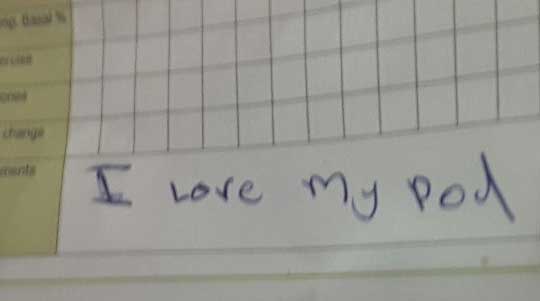 mp. Basal %
ercise
ones
change
ments
I Love My Pod